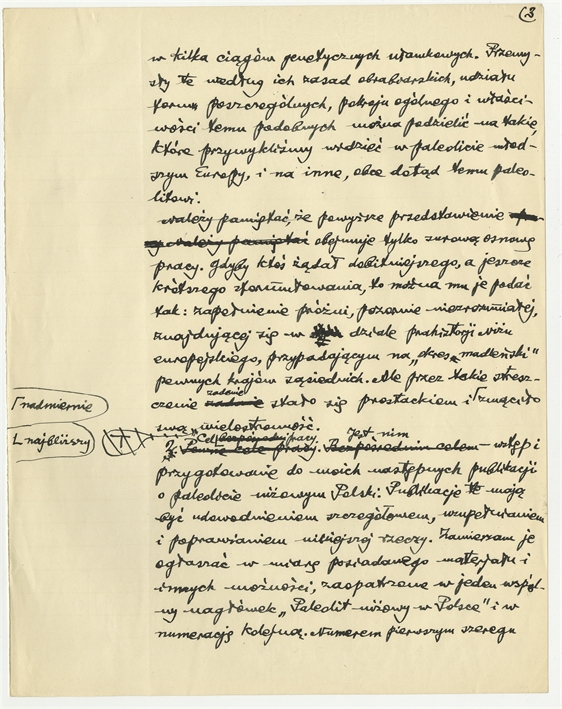 (3
w kilka ciągów genetycznych ułamkowych. Przemy-
sły te według ich zasad obrabiarskich, udziału
form poszczególnych, pokroju ogólnego i właści-
wości temu podobnych można podzielić na takie,
które przywykliśmy widzieć w paleolicie młod-
szym Europy, i na inne, obce dotąd temu paleo-
litowi.
Należy pamiętać, że powyższe przedstawienie
należy pamiętać obejmuje tylko surową osnowę
pracy. Gdyby ktoś żądał dobitniejszego, a jeszcze
krótszego sformułowania, to można mu je podać
tak: zapełnienie próżni, pozornie niezrozumiałej,
znajdującej się w dziale prahistorji niżu
europejskiego, przypadającym na „okres madleński"
pewnych krajów sąsiednich. Ale przez takie stresz-
zadanie
czenie zadanie stało się prostackiem i ⌈zwęziło
⌈nadmiernie
swą wielostronność.
⌊najbliższy
Cel bezpośredni pracy. Jest nim
2. Pewne cele pracy. Bezpośrednim celem - wstęp i
przygotowanie do moich następnych publikacji
o paleolicie niżowym Polski. Publikacje te mają
być udowodnieniem szczegółowem, uzupełnianiem
i poprawianiem niniejszej rzeczy. Zamierzam je
ogłaszać w miarę posiadanego materjału i
innych możności, zaopatrzone w jeden wspól-
ny nagłówek „Paleolit niżowy w Polsce" i w
numerację kolejną. Numerem pierwszym szeregu